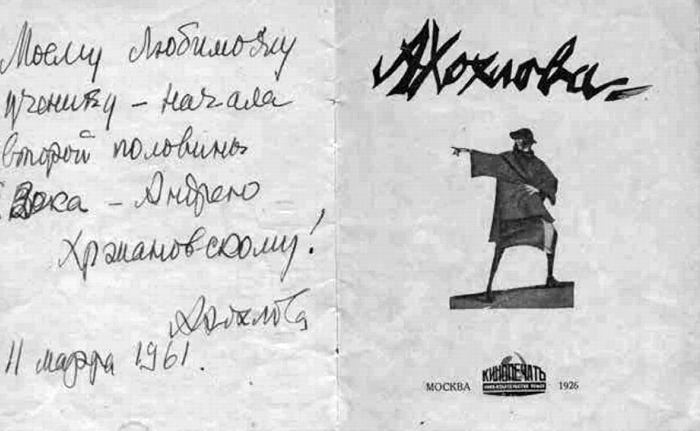 Моему Любимому
ученику – начала
второй половины
века – Андрею
Хржановскому!
АХохлова
11 марта 1961.
АХохлова
МОСКВА
КИНОПЕЧАТЬ
1926